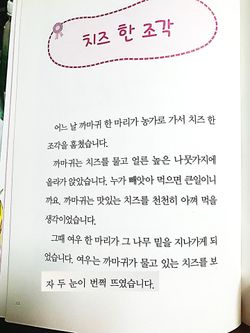 치즈 한 조각
어느 날 까마귀 한 마리가 농가로 가서 치즈 한
조각을 훔쳤습니다.
까마귀는 치즈를 물고 얼른 높은 나뭇가지에
올라가 앉았습니다. 누가 빼앗아 먹으면 큰일이니
까요. 까마귀는 맛있는 치즈를 천천히 아껴 먹을
생각이었습니다.
그때 여우 한 마리가 그 나무 밑을 지나가게 되
었습니다. 여우는 까마귀가 물고 있는 치즈를 보
자 두 눈이 번쩍 뜨였습니다.